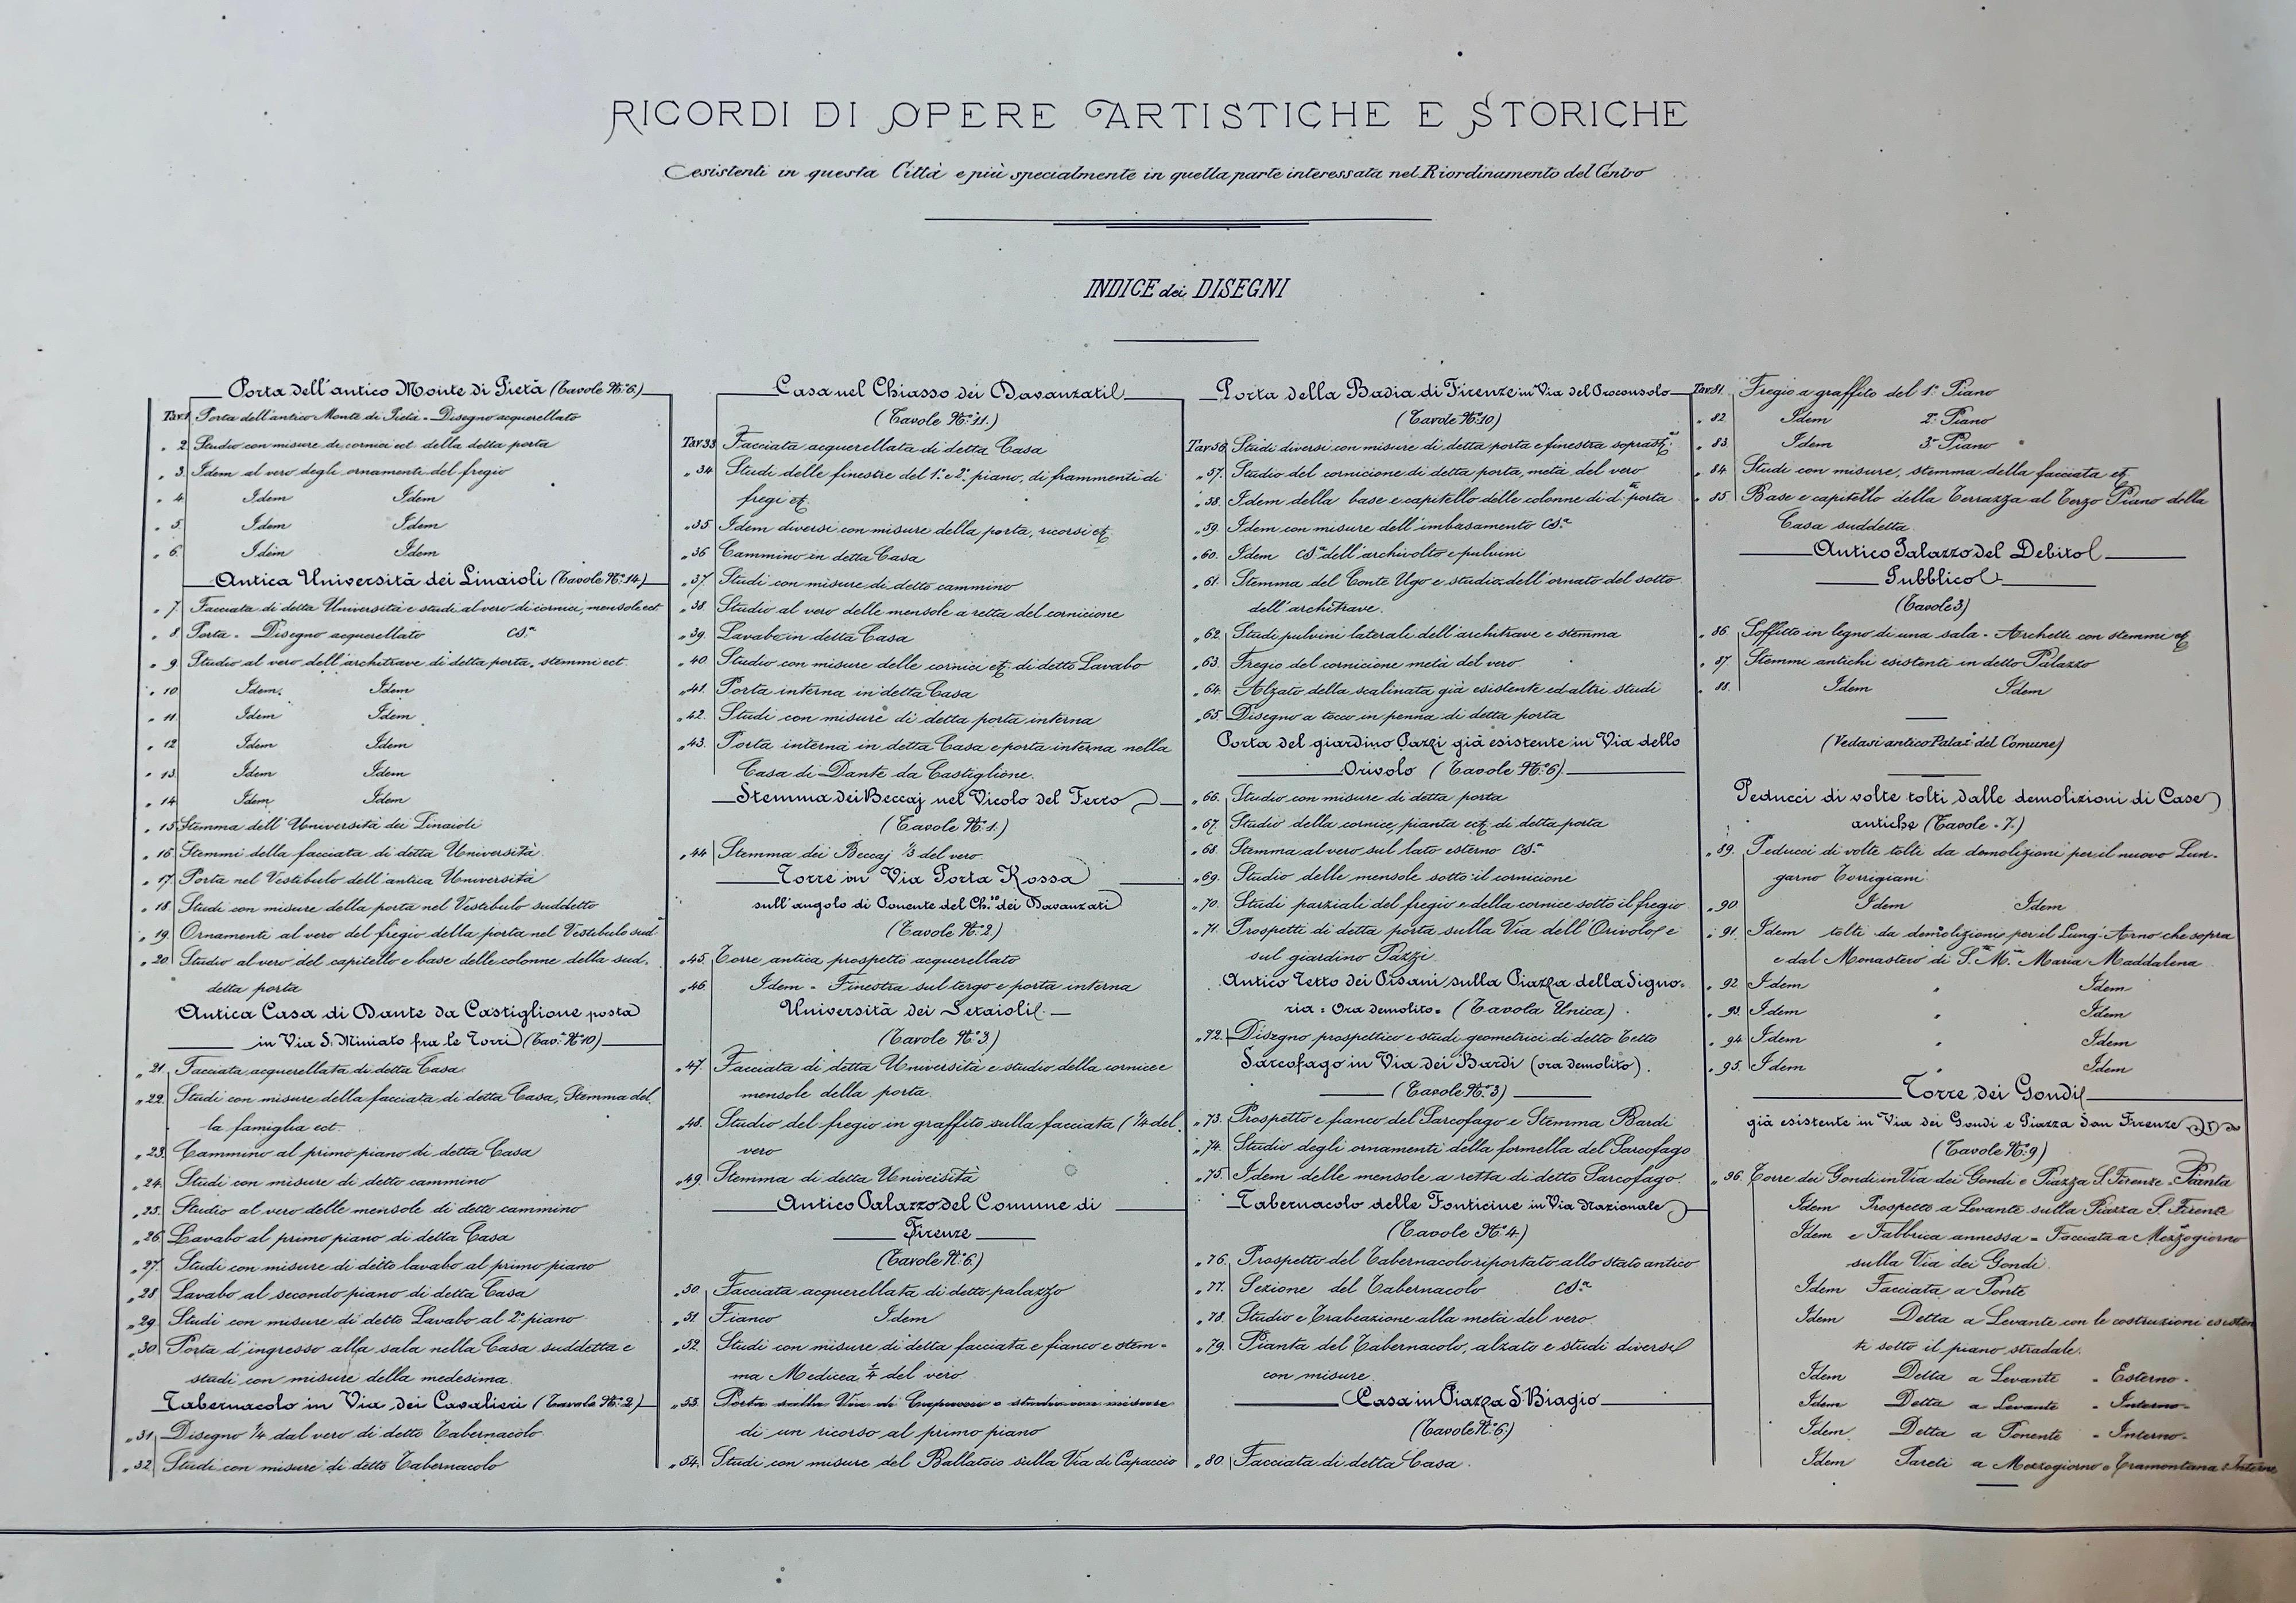 RICORDI DI OPERE ARTISTICHE E STORICHE
esistenti in questa Città e più specialmente in quella parte interessata nel Riordinamento del Centro
INDICE dei DISEGNI
Porta dell'antico Monte di Pietà (Tavole N.° 6)
Tav. 1 Porta dell'antico Monte di Pietà - Disegno acquerellato
" 2. Studio con misure di cornici ect. della detta porta
" 3. Idem al vero degli ornamenti del fregio
" 4 Idem Idem
" 5. Idem Idem
" 6. Idem Idem
Antica Università dei Linaioli (Tavole N.° 14)
" 7. Facciata di detta Università e studi al vero di cornici, mensole ect.
" 8. Porta - Disegno acquerellato CS.a
" 9. Studio al vero dell'architrave di detta porta, stemmi ect.
" 10 Idem. Idem
" 11. Idem Idem
" 12 Idem Idem
" 13. Idem Idem
" 14 Idem Idem
" 15 Stemma dell'Università dei Linaioli
" 16 Stemmi della facciata di detta Università
" 17 Porta nel Vestibulo dell'antica Università
" 18 Studi con misure della porta nel Vestibulo suddetto
" 19. Ornamenti al vero del fregio della porta nel Vestibulo sud.
" 20 Studio al vero del capitello e base delle colonne della sud.
detta porta
Antica Casa di Dante da Castiglione posta
in Via S. Miniato fra le Torri (Tav.e N.° 10)
" 21. Facciata acquerellata di detta Casa
" 22. Studi con misure della facciata di detta Casa, Stemma del.
la famiglia ect.
" 23. Cammino al primo piano di detta Casa
" 24. Studi con misure di detto cammino
" 25. Studio al vero delle mensole di detto cammino
" 26 Lavabo al primo piano di detta Casa
" 27. Studi con misure di detto lavabo al primo piano
" 28 Lavabo al secondo piano di detta Casa
" 29. Studi con misure di detto Lavabo al 2° piano
" 30 Porta d'ingresso alla sala nella Casa suddetta e
studi con misure della medesima.
Tabernacolo in Via dei Cavalieri (Tavole N.° 2)
" 31 Disegno 1/4 dal vero di detto Tabernacolo
" 32 Studi con misure di detto Tabernacolo
Casa nel Chiasso dei Davanzati
(Tavole N.° 11.)
Tav. 33 Facciata acquerellata di detta Casa
" 34. Studi delle finestre del 1.° e 2.° piano, di frammenti di
fregi etc.
" 35 Idem diversi con misure della porta, ricorsi etc.
" 36 Cammino in detta Casa
" 37. Studi con misure di detto cammino
" 38. Studio al vero delle mensole a retta del cornicione
" 39. Lavabo in detta Casa
" 40. Studio con misure delle cornici etc. di detto Lavabo
" 41. Porta interna in detta Casa
" 42. Studi con misure di detta porta interna
" 43. Porta interna in detta Casa e porta interna nella
Casa di Dante da Castiglione.
Stemma dei Beccaj nel Vicolo del Ferro
(Tavole N.° 1.)
" 44 Stemma dei Beccaj 1/3 del vero
Torre in Via Porta Rossa
sull'angolo di Ponente del Ch.so dei Davanzati
(Tavole N.° 2)
" 45. Torre antica prospetto acquerellato
" 46 Idem - Finestra sul tergo e porta interna
Università dei Setaioli
(Tavole N.° 3)
" 47. Facciata di detta Università e studio della cornice e
mensole della porta.
" 48. Studio del fregio in graffito sulla facciata (1/4 del
vero
" 49. Stemma di detta Univeisità
Antico Palazzo del Comune di
Firenze
(Tavole N.° 6.)
" 50. Facciata acquerellata di detto palazzo
" 51. Fianco Idem
" 52. Studi con misure di detta facciata e fianco e stem-
ma Medicea 1/4 del vero
" 53. Porta sulla Via di Capaccio e studio con misure
di un ricorso al primo piano
" 54. Studi con misure del Ballatoio sulla Via di Capaccio
Porta della Badia di Firenze in Via del Proconsolo
(Tavole N.° 10)
Tav 56 Studi diversi con misure di detta porta e finestra soprast.
" 57. Studio del cornicione di detta porta, metà del vero
" 58. Idem della base e capitello delle colonne di d.ta porta
" 59. Idem con misure dell'imbasamento CS.a
" 60. Idem CS.a dell'archivolto e pulvini
" 61 Stemma del Conte Ugo e studio dell'ornato del sotto
dell'architrave.
" 62. Studi pulvini laterali dell'architrave e stemma
" 63. Fregio del cornicione metà del vero
" 64. Alzato della scalinata già esistente ed altri studi
" 65. Disegno a tocco in penna di detta porta
Porta del giardino Pazzi già esistente in Via dello
Orivolo (Tavole N.° 6)
" 66. Studio con misure di detta porta
" 67. Studio della cornice, pianta ect. di detta porta
" 68. Stemma al vero sul lato esterno CS.a
" 69. Studio delle mensole sotto il cornicione
" 70. Studi parziali del fregio e della cornice sotto il fregio
" 71. Prospetti di detta porta sulla Via dell'Orivolo e
sul giardino Pazzi
Antico Tetto dei Pisani sulla Piazza della Signo-
ria = Ora demolito = (Tavola Unica).
" 72. Disegno prospettico e studi geometrici di detto Tetto
Sarcofago in Via dei Bardi (ora demolito).
(Tavole N.° 3)
" 73. Prospetto e fianco del Sarcofago e Stemma Bardi
" 74. Studio degli ornamenti della formella del Sarcofago
" 75. Idem delle mensole a retta di detto Sarcofago.
Tabernacolo delle Fonticine in Via Nazionale
(Tavole N.° 4)
" 76. Prospetto del Tabernacolo riportato allo stato antico
" 77. Sezione del Tabernacolo CS.a
" 78. Studio e Trabeazione alla metà del vero
" 79. Pianta del Tabernacolo, alzato e studi diversi
con misure.
Casa in Piazza S. Biagio
(Tavole N.° 6.)
" 80. Facciata di detta Casa.
Tav. 81. Fregio a graffito del 1.° Piano
" 82 Idem 2.° Piano
" 83. Idem 3.° Piano
" 84. Studi con misure, stemma della facciata etc
" 85. Base e capitello della Terrazza al Terzo Piano della
Casa suddetta
Antico Palazzo del Debito
Pubblico
(Tavole 3)
" 86. Soffitto in legno di una sala - Archetti con stemmi etc
" 87. Stemmi antichi esistenti in detto Palazzo
" 88. Idem Idem
(Vedasi antico Palaz.° del Comune)
Peducci di volte tolti dalle demolizioni di Case
antiche (Tavole - 7.)
" 89. Peducci di volte tolti da demolizioni per il nuovo Lun-
garno Torrigiani
" 90. Idem Idem
" 91. Idem tolti da demolizioni per il Lung'Arno che sopra
e dal Monastero di S.ta M. Maria Maddalena
" 92. Idem " Idem
" 93. Idem " Idem
" 94. Idem " Idem
" 95. Idem " Idem
Torre dei Gondi
già esistente in Via dei Gondi e Piazza San Firenze
(Tavole N.° 9)
" 96. Torre dei Gondi in Via dei Gondi e Piazza S. Firenze - Pianta
Idem Prospetto a Levante sulla Piazza S. Firenze
Idem e Fabbrica annessa - Facciata a Mezzogiorno
sulla Via dei Gondi.
Idem Facciata a Ponte
Idem Detta a Levante con le costruzioni esisten
ti sotto il piano stradale.
Idem Detta a Levante - Esterno -
Idem Detta a Levante - Interno -
Idem Detta a Ponente - Interno -
Idem Pareti a Mezzogiorno e Tramontana - Interne